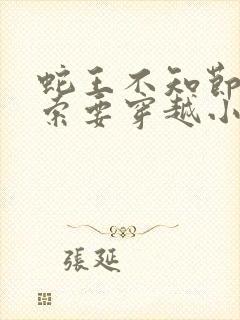 蛇王不知節
索要穿越小
張延